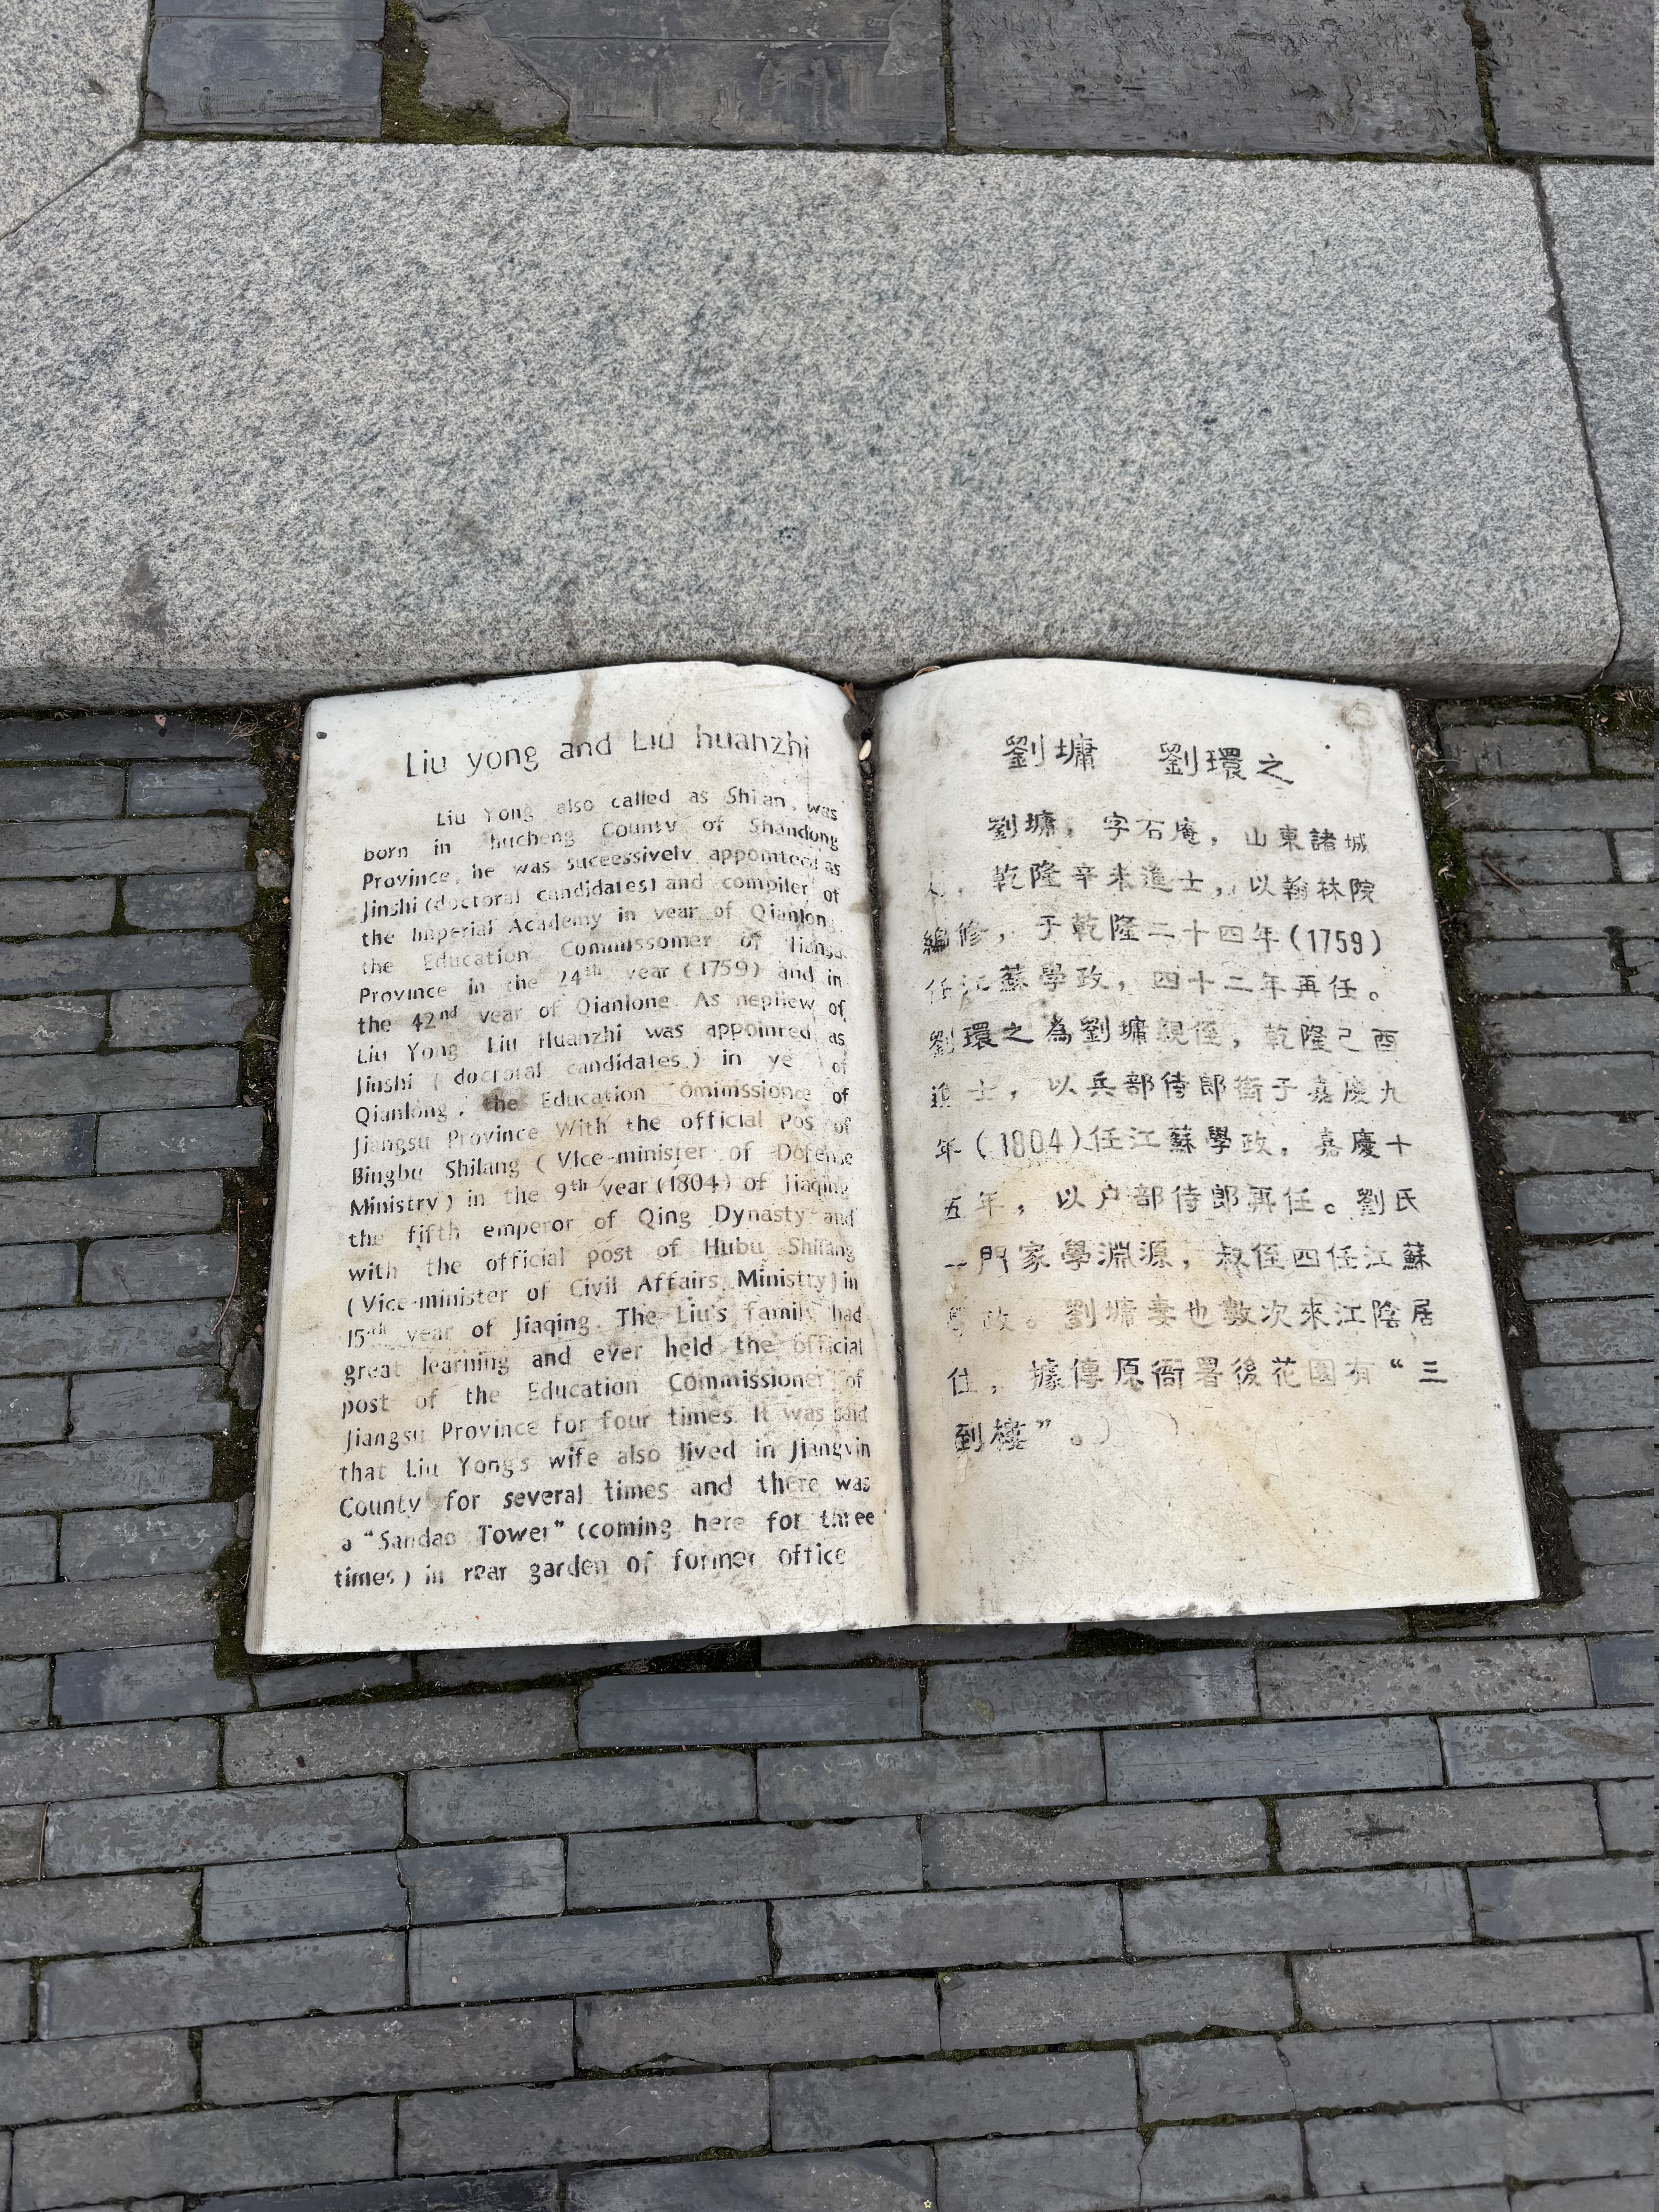 Liu yong and Liu huanzhi
Liu Yong also called as Shi'an, was
born in hucheng County of Shandong
Province, he was successively appointed as
Jinshi (doctoral candidates) and compiler of
the Imperial Academy in year of Qianlong,
the Education Commissomer of Jiangsu
Province in the 24th year (1759) and in
the 42nd year of Qianlone. As nephew of
Liu Yong Liu Huanzhi was appointed as
Jinshi ( doctoral candidates ) in of
Qianlong, the Education of
Jiangsu Province With the official of
Bingbu Shilang ( Vice-minister of Defense
Ministry ) in the 9th year (1804) of Jiaqing
the fifth emperor of Qing Dynasty and
with the official post of Hubu Shilang
(Vice-minister of Civil Affairs Ministry) in
15th year of Jiaqing. The Liu's family had
great learning and ever held the official
post of the Education Commissioner of
Jiangsu Province for four times. It was said
that Liu Yong's wife also lived in Jiangyin
County for several times and there was
a "Sandao Tower" (coming here for three
times) in rear garden of former office
劉墉 劉環之
劉墉，字石庵，山東諸城
人，乾隆辛未進士，以翰林院
編修，于乾隆二十四年(1759)
任江蘇學政，四十二年再任。
劉環之為劉墉親侄，乾隆己酉
進士，以兵部侍郎銜于嘉慶九
年(1804)任江蘇學政，嘉慶十
五年，以户部侍郎再任。劉氏
一門家學淵源，叔侄四任江蘇
學政。劉墉妻也數次來江陰居
住，據傳原衙署後花園有“三
到樓”。